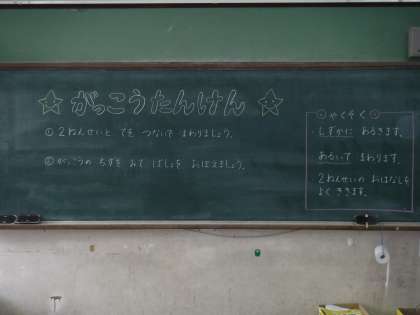 ☆ がっこうたんけん ☆
① 2ねんせいと てを つないで まわりましょう。
② がっこうの ちずを みて ばしょを おぼえましょう。
◎ やくそく ◎
・しずかに あるきます。
あるいて まわります。
2ねんせいの おはなしを
よく ききます。